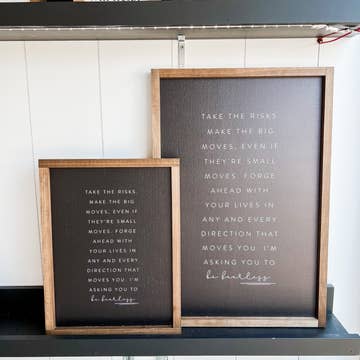 TAKE THE RISKS.
MAKE THE BIG
MOVES, EVEN IF
THEY'RE SMALL
MOVES. FORGE
AHEAD WITH
YOUR LIVES IN
ANY AND EVERY
DIRECTION THAT
MOVES YOU. I'M
ASKING YOU TO
be fearless.
TAKE THE RISKS
MAKE THE BIG
MOVES, EVEN IF
THEY'RE SMALL
MOVES. FORGE
AHEAD WITH
YOUR LIVES IN
ANY AND EVERY
DIRECTION THAT
MOVES YOU. I'M
ASKING YOU TO
be fearless.